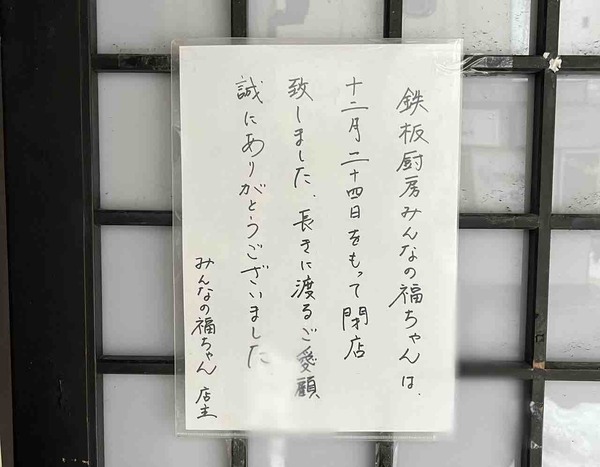 鉄板厨房みんなの福ちゃんは、
十二月二十四日をもって閉店
致しました、長きに渡るご愛顧
誠にありがとうございました
みんなの福ちゃん 店主